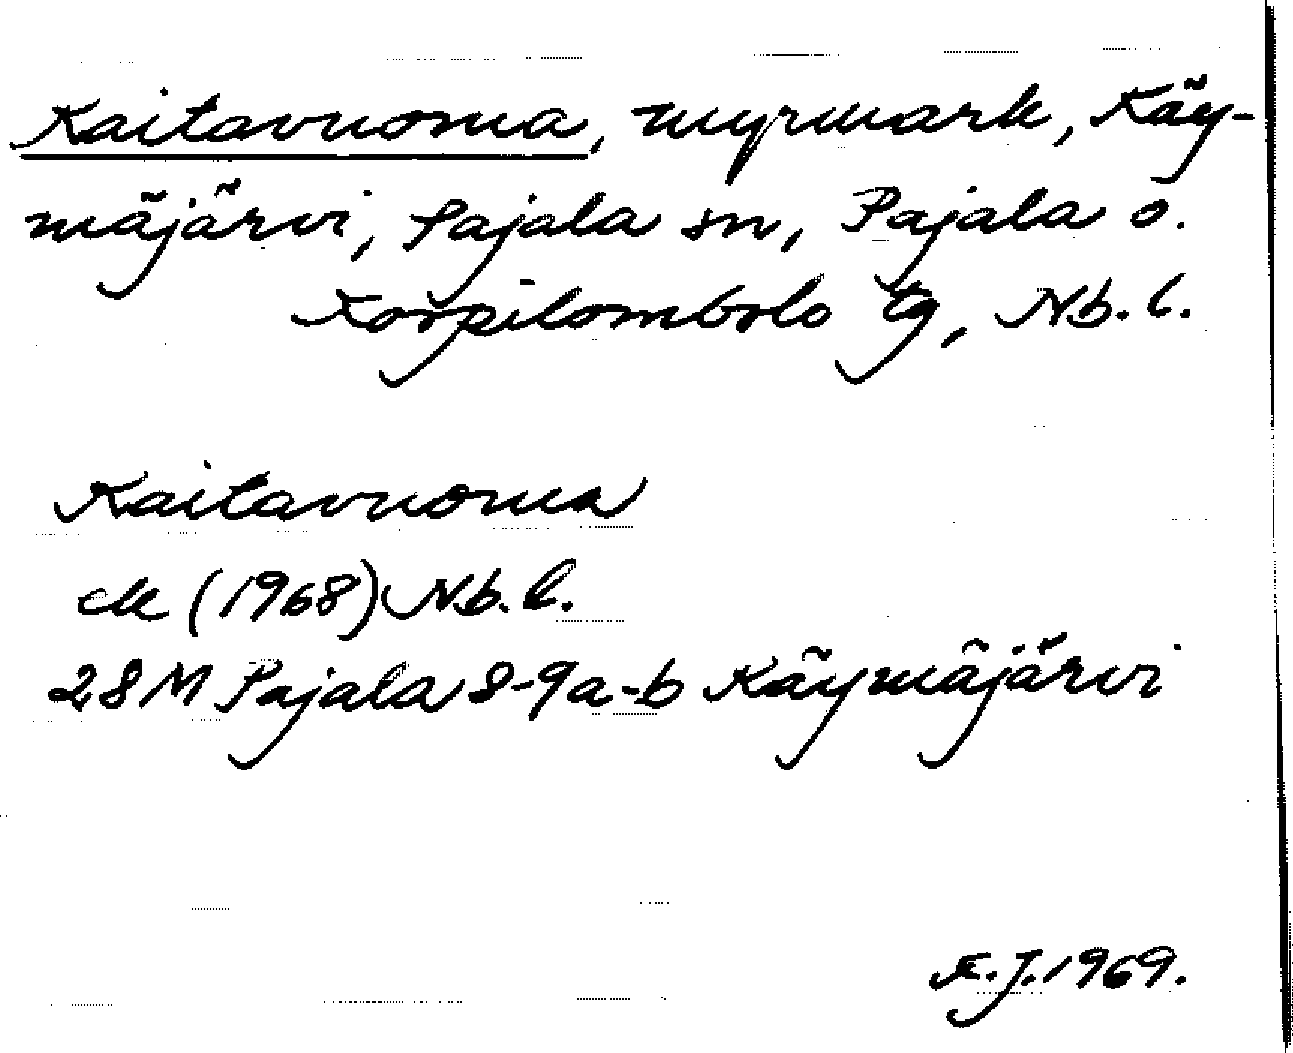 Kaitavuoma, myrmark, Käy-
mäjärvi, Pajala sn, Pajala o.
Korpilombolo tg, Nb. l.
Kaitavuoma
ek (1968) Nb. l.
28M Pajala 8-9a-b Käymäjärvi
E.J. 1969.